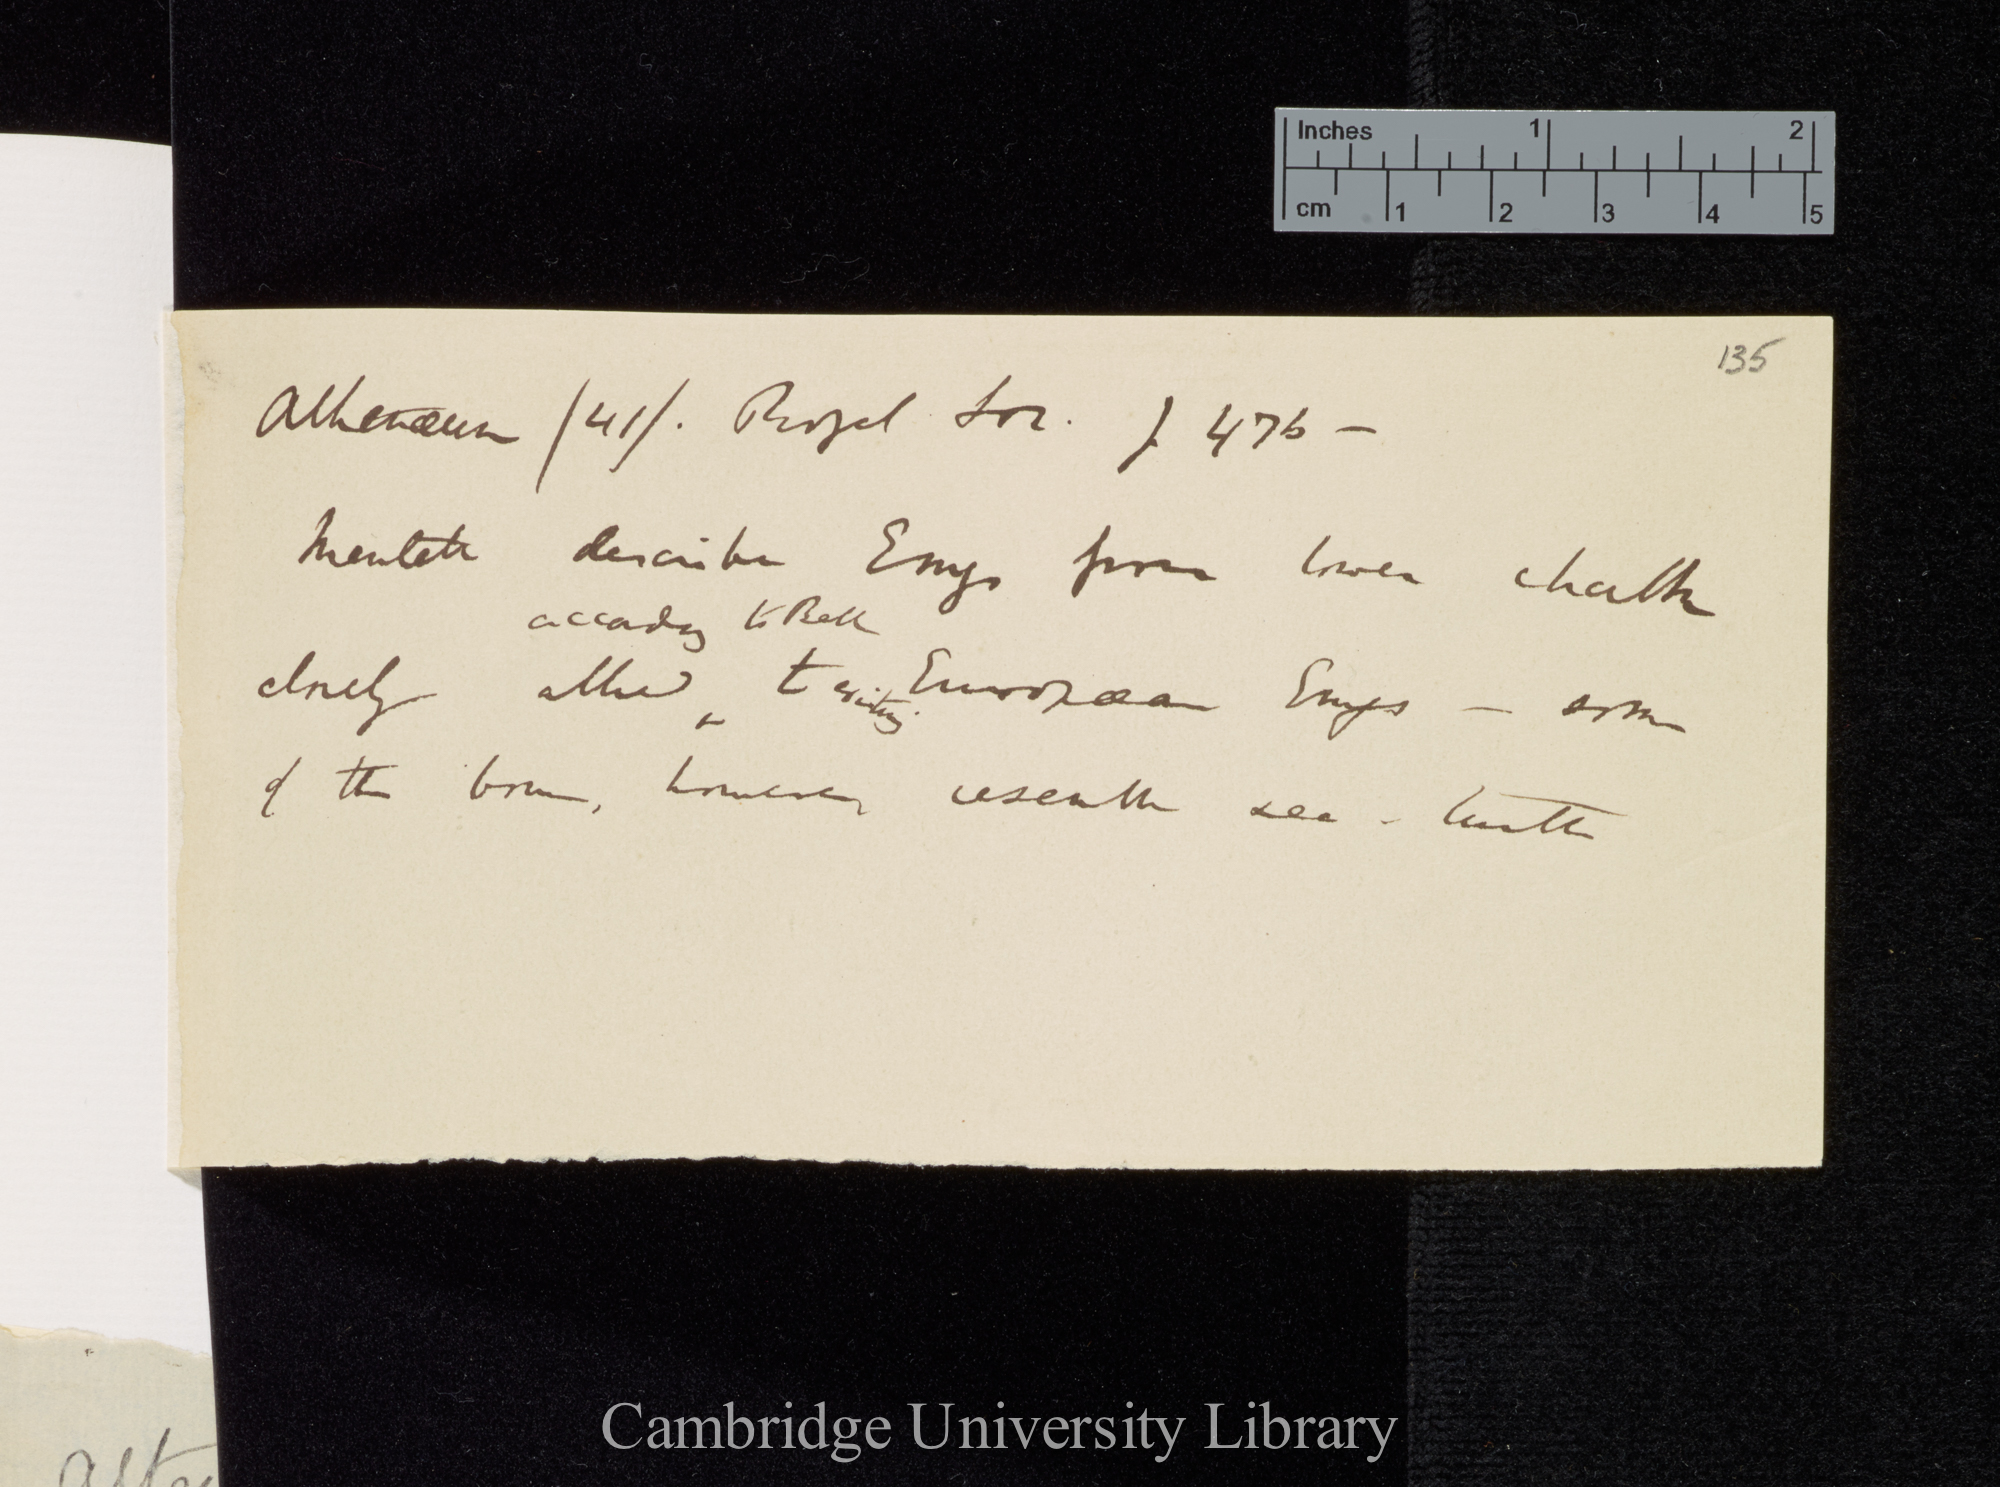 135
Athenæum /41/. Royal Soc. p 476 –
Mantell describes Emys from lower chalk
according to Bell
closely allied ‸ to existing European Emys – some
of the bones, however, resemble sea-turtle
Inches 1 2
cm 1 2 3 4 5
Cambridge University Library